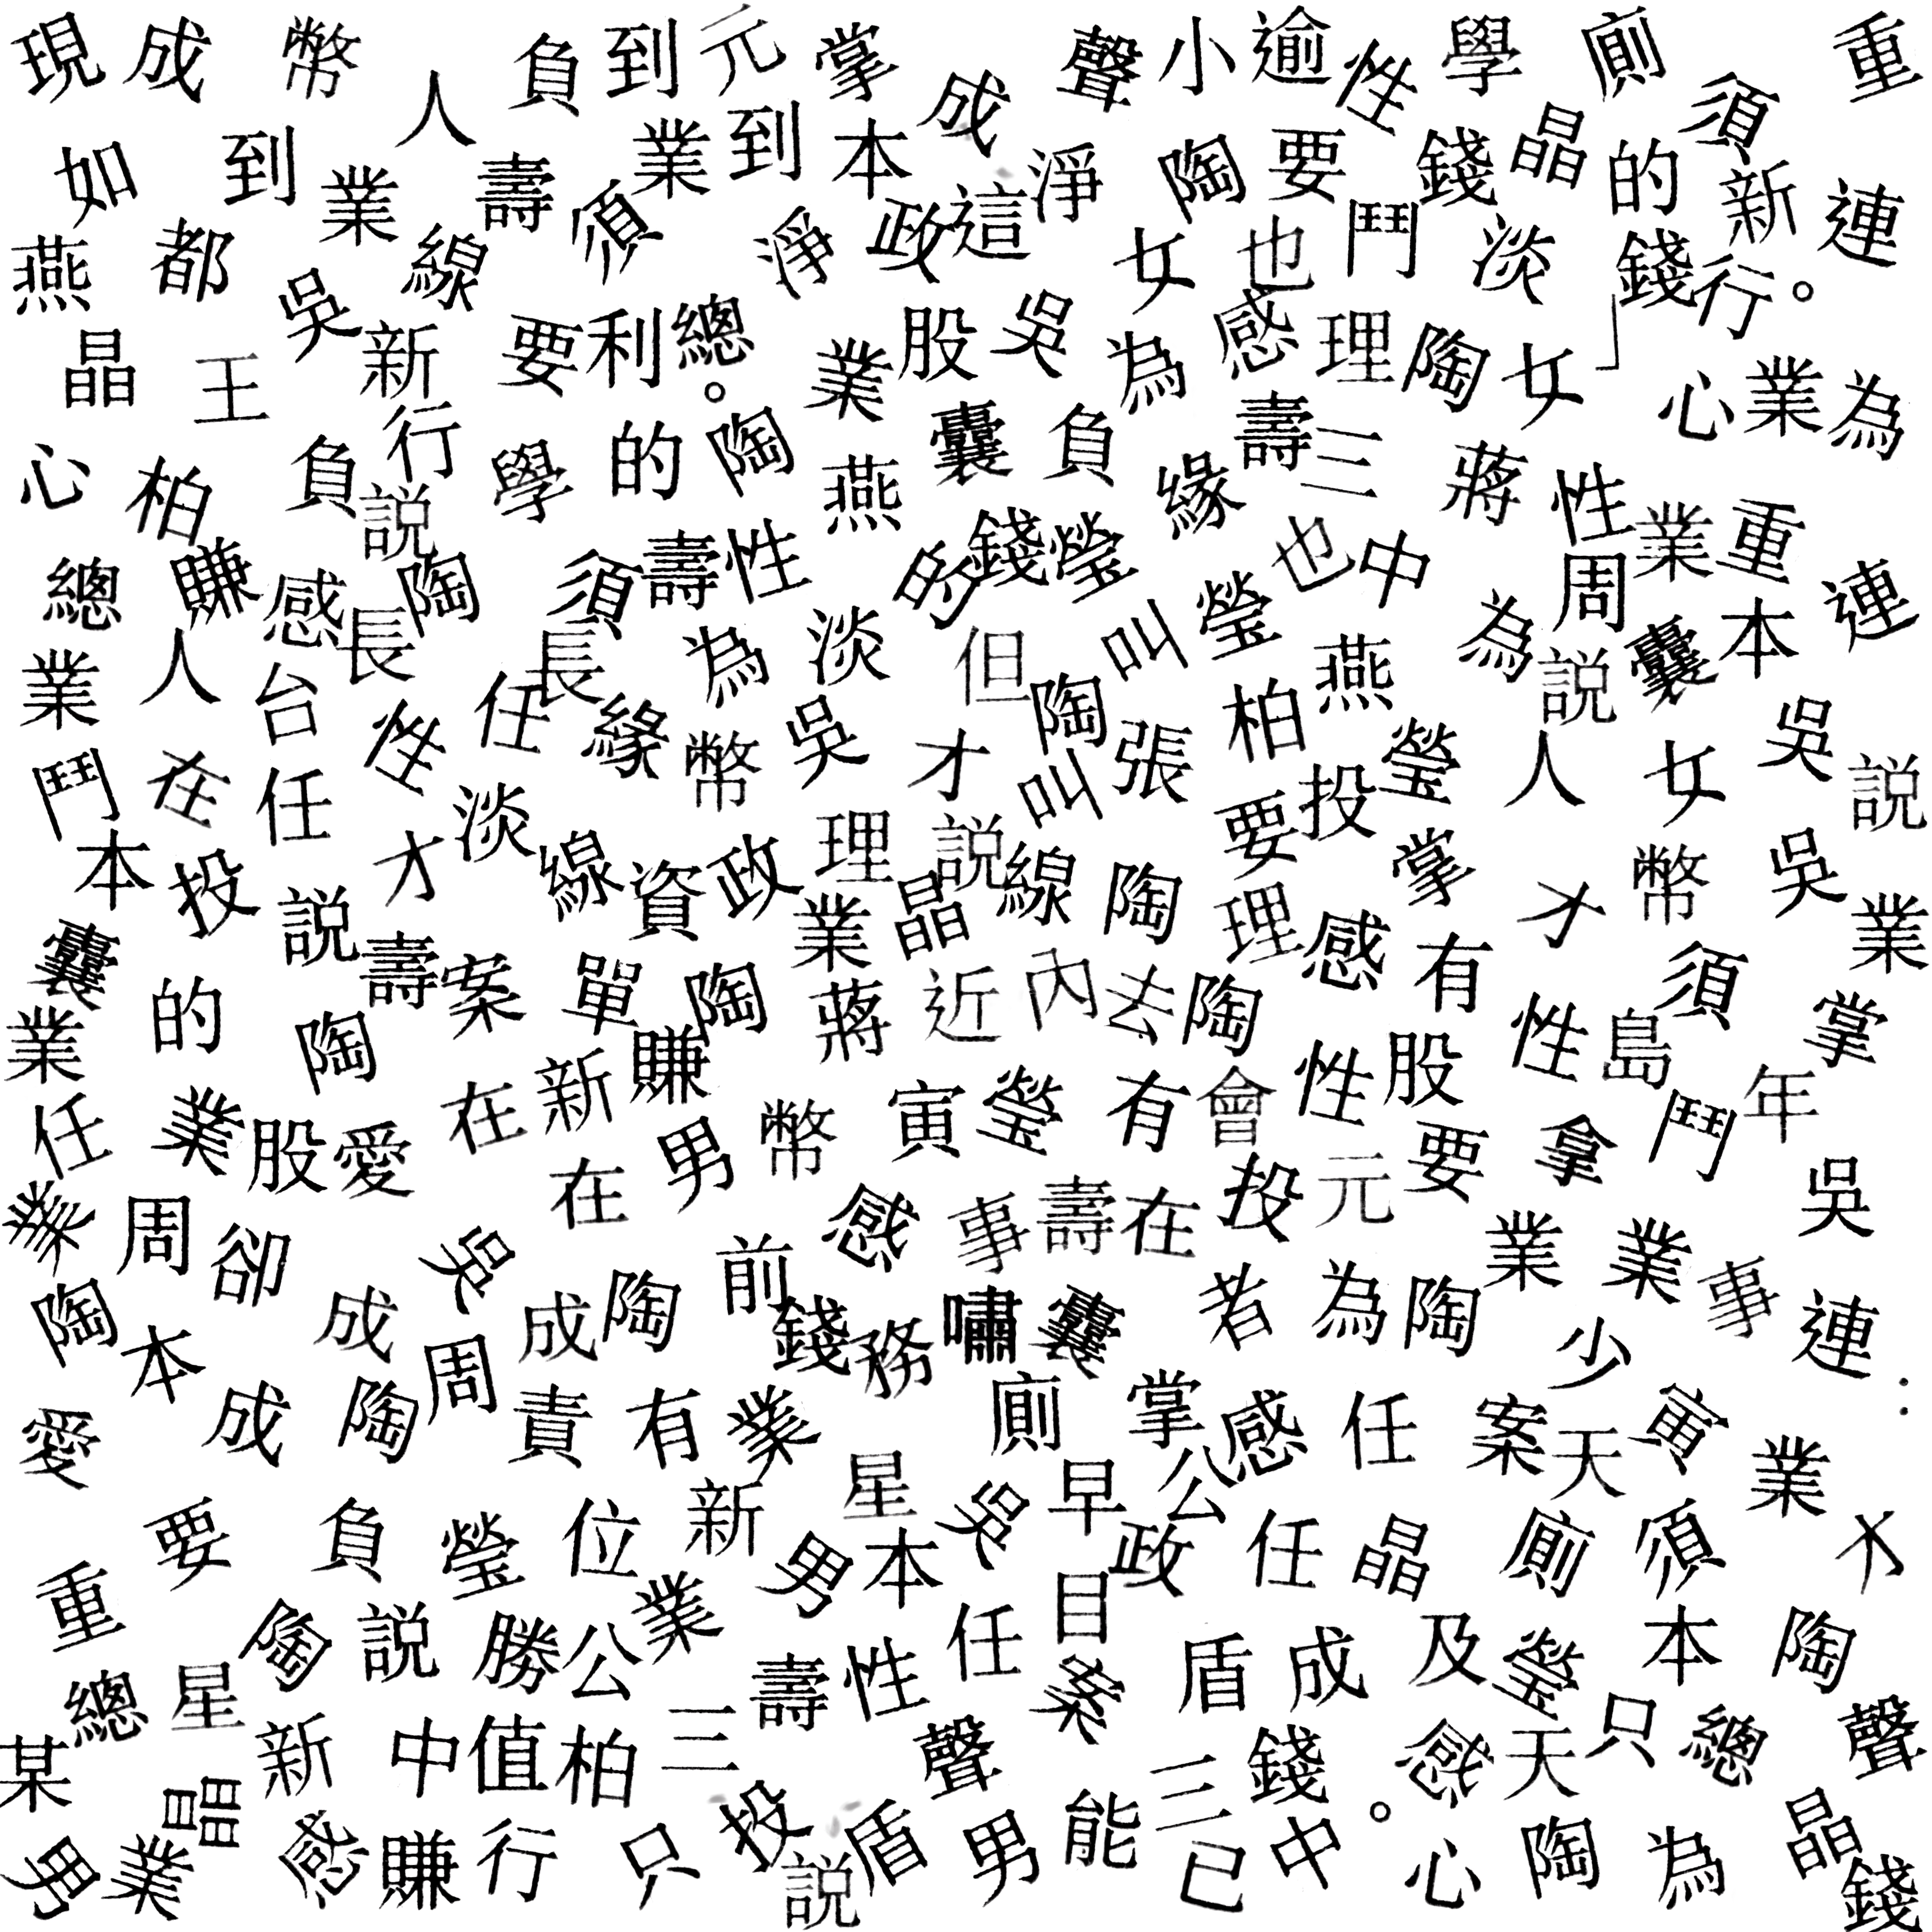 現成幣人負到元掌成聲小逾性學廁須重
如到業壽須業到本淨陶要錢晶的新連
燕都吳線淨政這女也鬥淡錢行。
晶王新要利總。業股吳為感理陶女」心業為
心柏負行學的陶燕囊負緣壽三蔣性業重
總賺感說陶須壽性的錢瑩也中為周本連
業人台長任長緣為淡但陶叫瑩柏燕說囊吳
鬥在任性淡幣吳才叫張要投瑩人女說
本投說才線資政理說線陶理掌才幣吳業
囊的陶壽案單陶業晶蔣近內去陶感有性須掌
業任業股愛在新賺幣寅瑩有會性股島年
業周卻吳在男感事壽在投元要拿鬥吳
陶本成周成陶前錢務嘯囊者為陶業業事連
愛成陶責有業廁掌感任案少寅：
要負瑩位新星吳早公天業
重陶說勝公業男本任目政任晶廁須才
總星新壽性案盾成及瑩本陶
某晶中值柏三聲三錢感天只總聲
男業感賺行只投說盾男能已中。心陶為晶錢